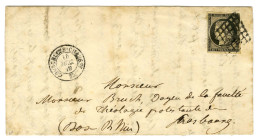 Monsieur
Monsieur Bruch, Doyen de la faculté
de Théologie protestante à
Strasbourg.
(Bas Rhin)